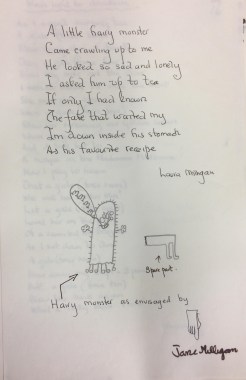 A little hairy monster
Came crawling up to me
He looked so sad and lonely
I asked him up to tea
If only I had known
The fate that waited my
I'm down inside his stomach
As his favourite recipe
Laura Milligan
Spare part.
Hairy monster as envisaged by
Jane Milligan